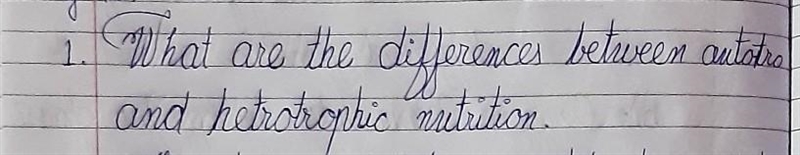 1. What are the differences between autotro
and hetrotrophic nutrition.